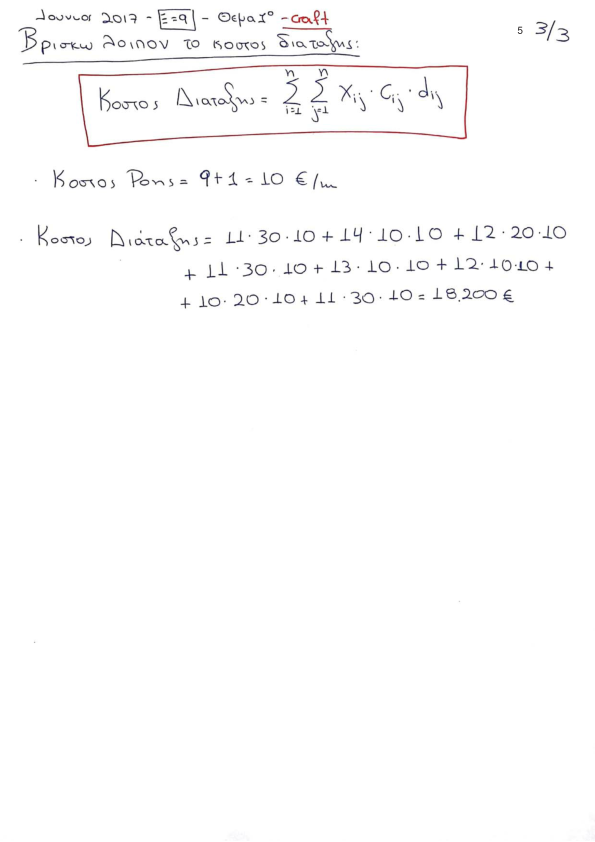 Ιουνιος 2017 - Ξ=9 - Θεμα 1° - craft
5 3/3
Βρισκω λοιπον το κοστος διαταξης:
Κοστος Διαταξης = n Σ i=1 n Σ j=1 Xij · Cij · dij
· Κοστος Ροης = 9+1 = 10 €/m
· Κοστος Διάταξης = 11·30·10 + 14·10·10 + 12·20·10
+ 11·30·10 + 13·10·10 + 12·10·10 +
+ 10·20·10 + 11·30·10 = 18.200 €